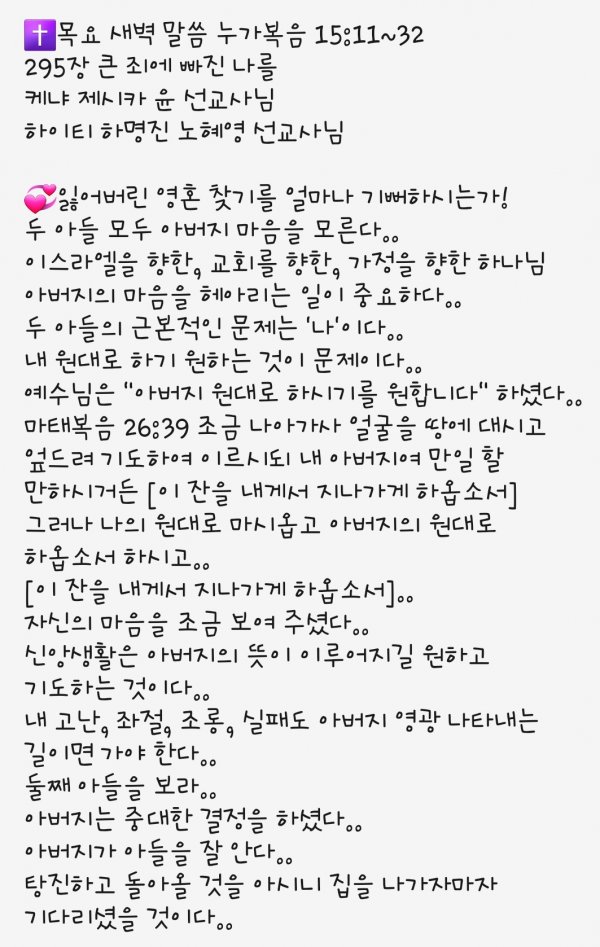 ✝️목요 새벽 말씀 누가복음 15:11~32
295장 큰 죄에 빠진 나를
케냐 제시카 윤 선교사님
하이티 하명진 노혜영 선교사님
💞잃어버린 영혼 찾기를 얼마나 기뻐하시는가!
두 아들 모두 아버지 마음을 모른다..
이스라엘을 향한, 교회를 향한, 가정을 향한 하나님
아버지의 마음을 헤아리는 일이 중요하다..
두 아들의 근본적인 문제는 '나'이다..
내 원대로 하기 원하는 것이 문제이다..
예수님은 "아버지 원대로 하시기를 원합니다" 하셨다..
마태복음 26:39 조금 나아가사 얼굴을 땅에 대시고
엎드려 기도하여 이르시되 내 아버지여 만일 할
만하시거든 [이 잔을 내게서 지나가게 하옵소서]
그러나 나의 원대로 마시옵고 아버지의 원대로
하옵소서 하시고..
[이 잔을 내게서 지나가게 하옵소서]..
자신의 마음을 조금 보여 주셨다..
신앙생활은 아버지의 뜻이 이루어지길 원하고
기도하는 것이다..
내 고난, 좌절, 조롱, 실패도 아버지 영광 나타내는
길이면 가야 한다..
둘째 아들을 보라..
아버지는 중대한 결정을 하셨다..
아버지가 아들을 잘 안다..
탕진하고 돌아올 것을 아시니 집을 나가자마자
기다리셨을 것이다..